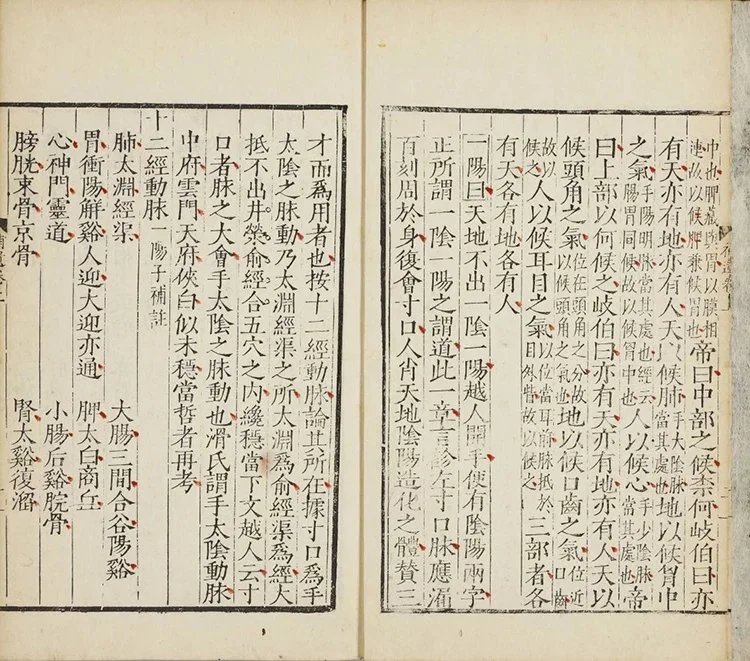 中也脾藏與胃以膜相連故以候脾兼候胃也帝曰中部之候柰何岐伯曰亦
有天亦有地亦有人天以候肺手太陰脉當其處也地以候胷中
之氣手陽明脉當其處也經云腸胃同候故以候胷中也人以候心手少陰脉當其處也帝
曰上部以何候之岐伯曰亦有天亦有地亦有人天以
候頭角之氣位在頭角之分故以候頭角之氣也地以候口齒之氣位近口齒
故以候之人以候耳目之氣以位當耳前脉抵於目外眥故以候之三部者各
有天各有地各有人
一陽曰天地不出一陰一陽越人開手便有陰陽兩字
正所謂一陰一陽之謂道此一章言診左寸口脉應漏
百刻周於身復會寸口人肖天地陰陽造化之體贊三
才而爲用者也按十二經動脉論其所在據寸口爲手
太陰之脉動乃太淵經渠之所太淵爲俞經渠爲經大
抵不出井滎俞經合五穴之内纔穩當下文越人云寸
口者脉之大會手太陰之脉動也滑氏謂手太陰動脉
中府雲門天府俠白似未穩當哲者再考
十二經動脉 一陽子補註
肺太淵經渠 大腸三間合谷陽谿
胃衝陽解谿人迎大迎亦通 脾太白商丘
心神門靈道 小腸后谿腕骨
膀胱束骨京骨 腎太谿復溜